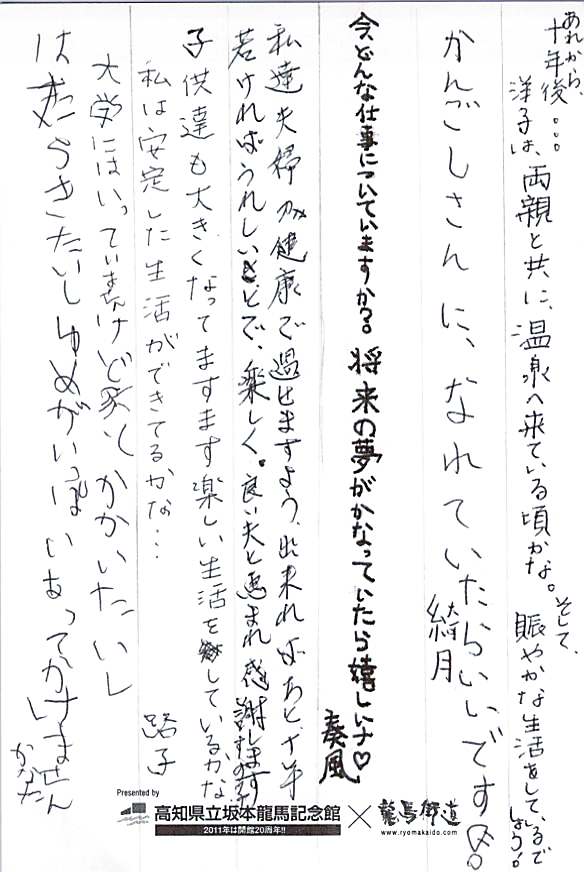 あれから、
十年後...
洋子は、両親と共に、温泉へ来ている頃かな。そして、
賑やかな生活をしているで
しょう!
かんごしさんに、なれていたらいいです。
綺月
今、どんな仕事についていますか?。将来の夢がかなっていたら嬉しいナ♡
奏風
私達夫婦が健康で過せますよう、出来ればあと十年
若ければうれしいことで、楽しく。良い夫と恵まれ感謝します
子供達も大きくなってますます楽しい生活をしているかな
私は安定した生活ができてるかな...
路子
大学にはいっていませんけど家にかかいたいし
はたらきたいしゆめがいっぱいあってかけません
かなた
Presented by
高知県立坂本龍馬記念館
2011年は開館20周年!!
×
龍馬街道
www.ryomakaido.com